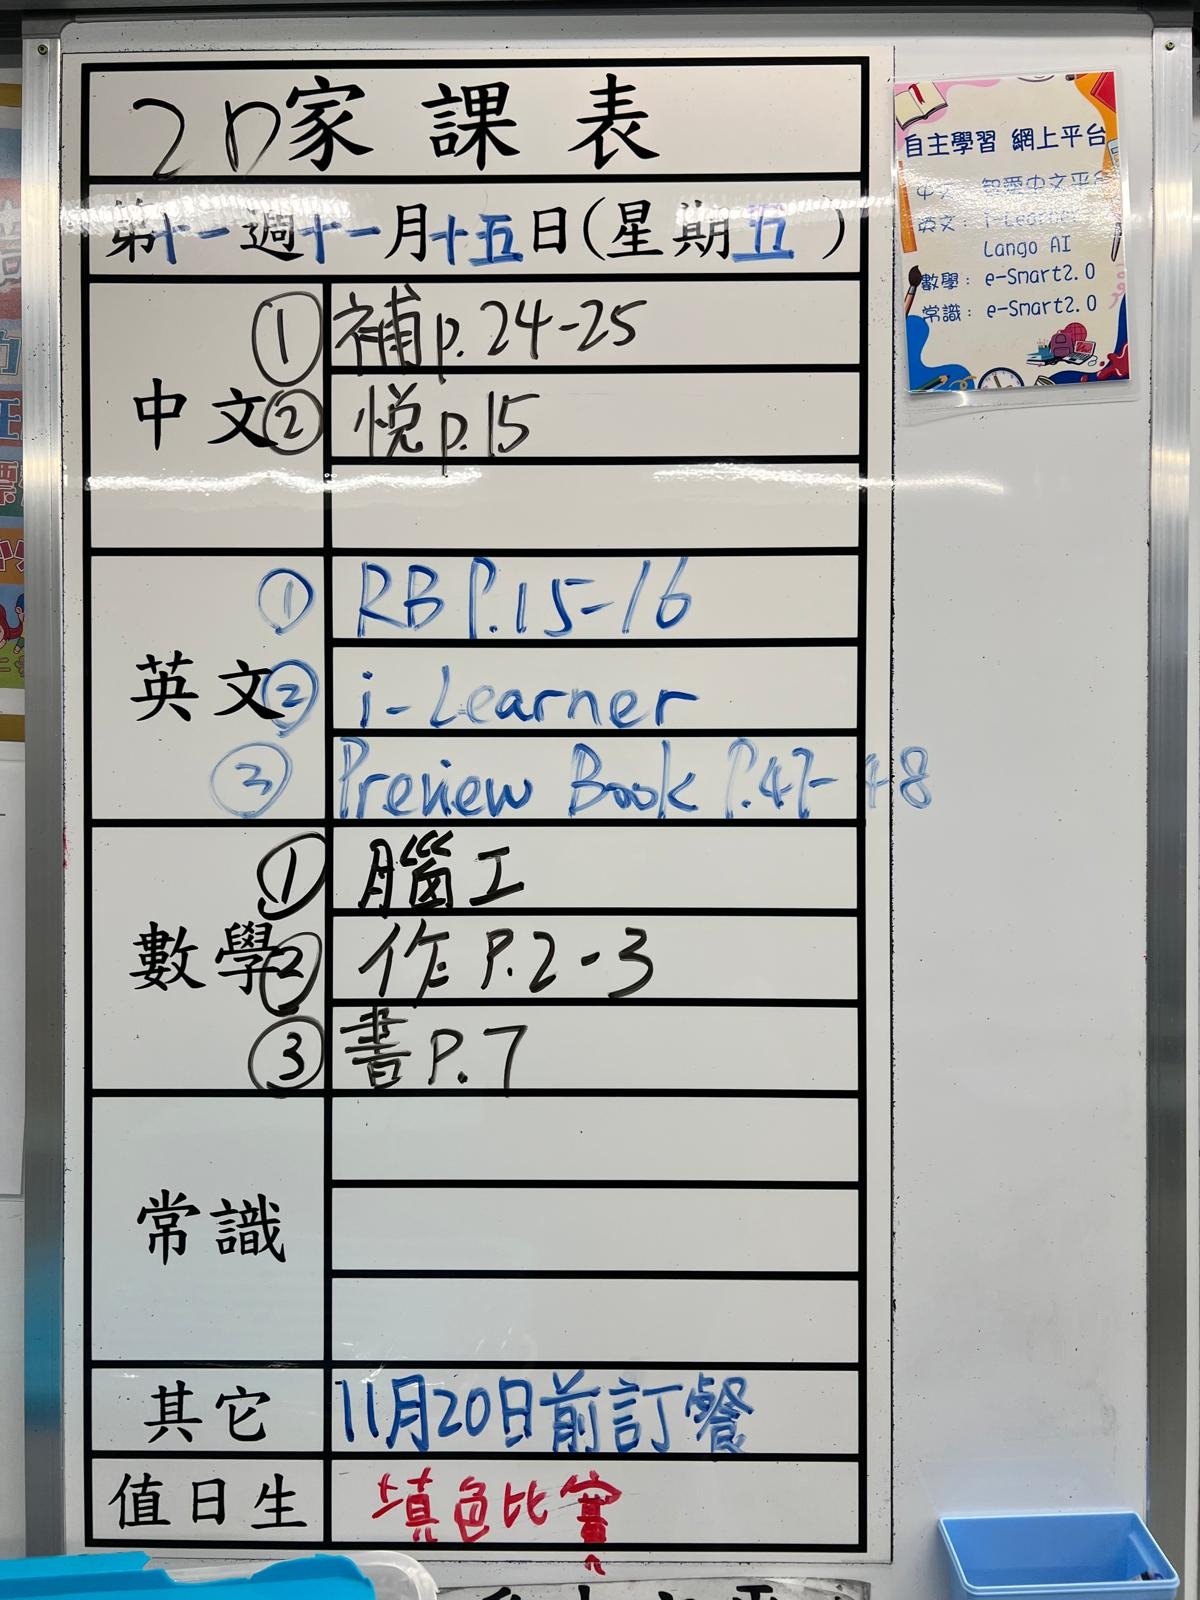 2D家課表
第十一週十一月十五日(星期五)
中文
① 補p.24-25
② 悅p.15
英文
① RB P.15-16
② i-Learner
③ Preview Book P.47-48
數學
① 腦工
② 作P.2-3
③ 書P.7
常識
其它 11月20日前訂餐
值日生 填色比賽
自主學習 網上平台
中文: 智愛中文平台
英文: i-Learner
Lango AI
數學: e-Smart2.0
常識: e-Smart2.0